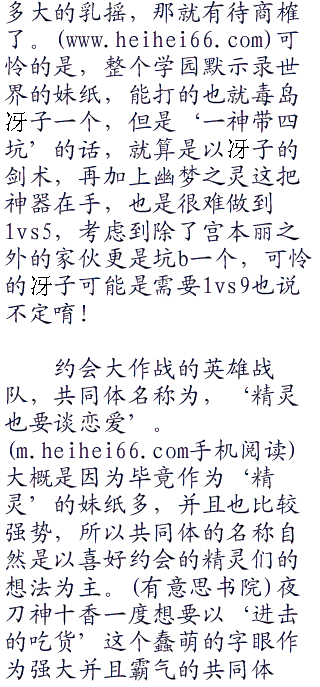 多大的乳摇，那就有待商榷
了。(www.heihei66.com)可
怜的是，整个学园默示录世
界的妹纸，能打的也就毒岛
冴子一个，但是‘一神带四
坑’的话，就算是以冴子的
剑术，再加上幽梦之灵这把
神器在手，也是很难做到
1vs5，考虑到除了宫本丽之
外的家伙更是坑b一个，可怜
的冴子可能是需要1vs9也说
不定唷！
约会大作战的英雄战
队，共同体名称为，‘精灵
也要谈恋爱’。
(m.heihei66.com手机阅读)
大概是因为毕竟作为‘精
灵’的妹纸多，并且也比较
强势，所以共同体的名称自
然是以喜好约会的精灵们的
想法为主。(有意思书院)夜
刀神十香一度想要以‘进击
的吃货’这个蠢萌的字眼作
为强大并且霸气的共同体